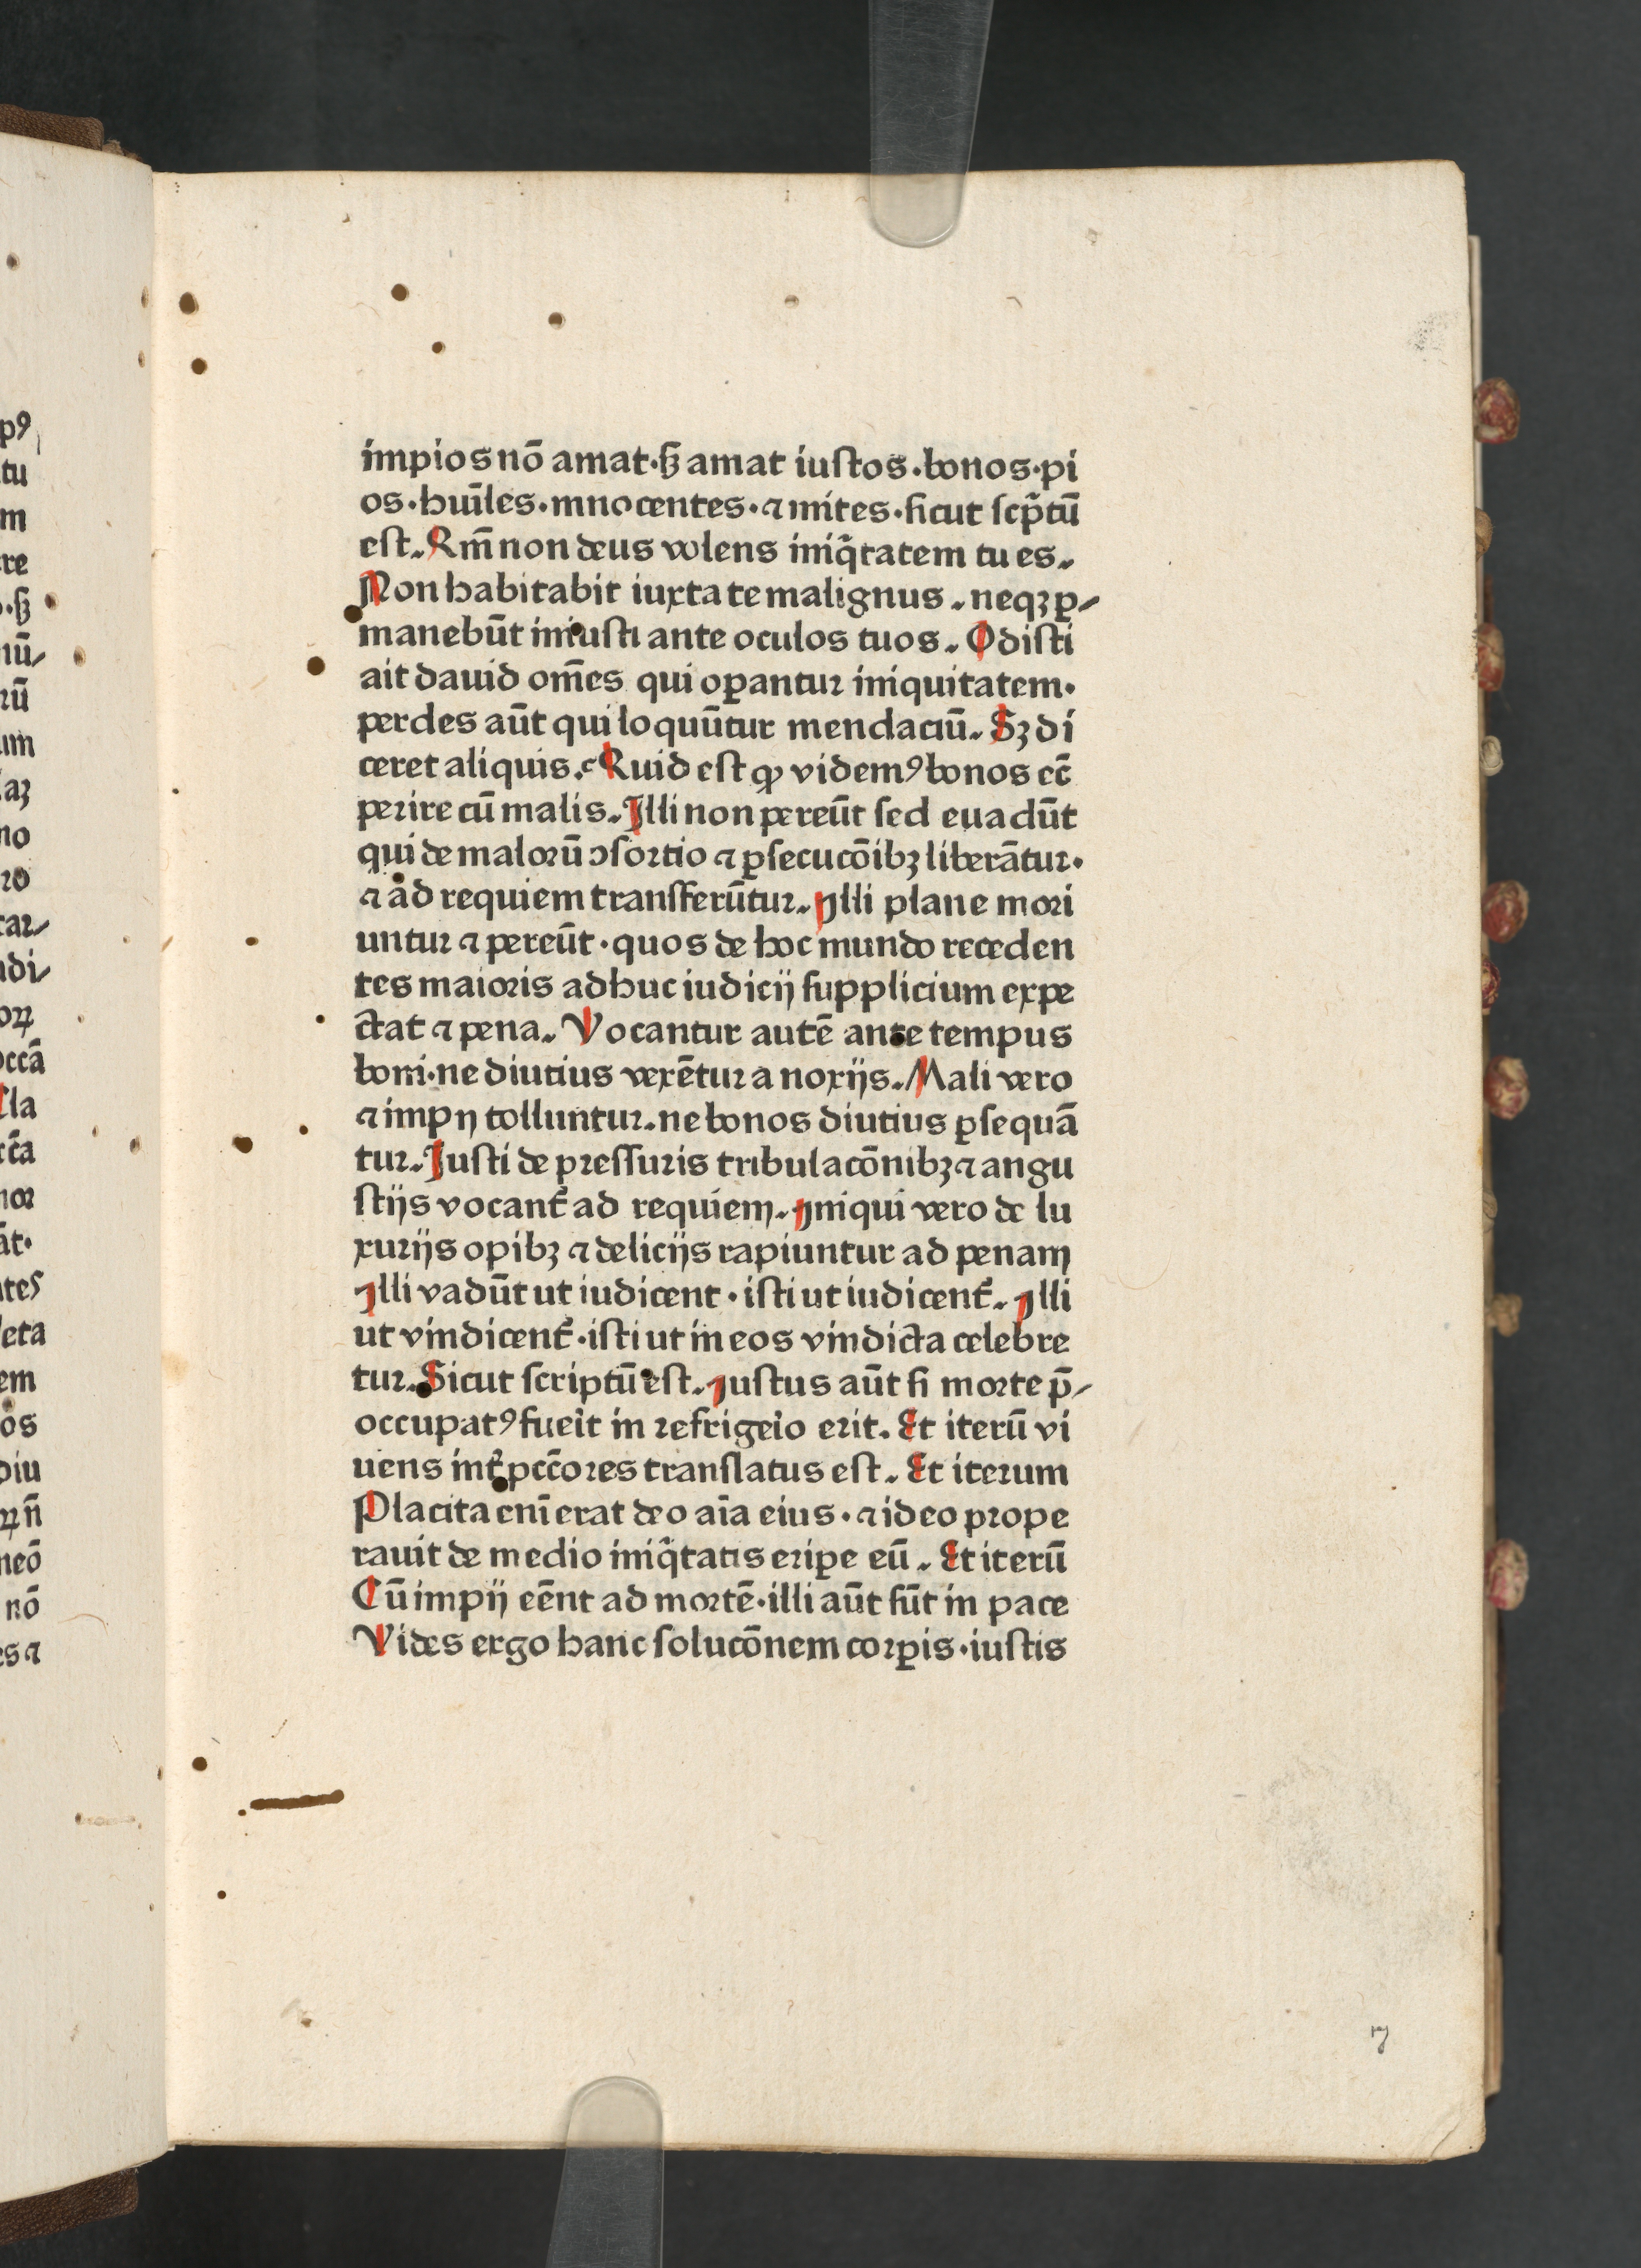 impios nō amat·sꝫ amat iustos·bonos·pi
os·huı̄les·innocentes·⁊ mites·sicut scp̄tū
est. Qm̄ non deus volens iniq̄tatem tu es.
Non habitabit iuxta te malignus. neqꝫ ꝑ⸗
manebūt iniusti ante oculos tuos. Odisti
ait dauid om̄es qui oꝑantur iniquitatem.
perdes aūt qui loquūtur mendaciū. Sꝫ di
ceret aliquis. Quid est ꝙ videmꝰ bonos ec̄
perire cū malis. Illi non pereūt sed euadūt
qui de malorū ↄsortio ⁊ ꝑsecucōibꝫ liberātur.
⁊ ad requiem transferūtur. Illi plane mori
untur ⁊ pereūt·quos de hoc mundo receden
tes maioris adhuc iudicij supplicium expe
ctat ⁊ pena. Vocantur autē ante tempus
boni·ne diutius vexētur a noxijs. Mali vero
⁊ impij tolluntur. ne bonos diutius ꝑsequā
tur. Justi de pressuris tribulacōnibꝫ ⁊ angu
stijs vocant᷑ ad requiem. Iniqui vero de lu
xurijs opibꝫ ⁊ delicijs rapiuntur ad penam
Illi vadūt ut iudicent·isti ut iudicent᷑. Illi
ut vindicent᷑·isti ut in eos vindicta celebre
tur. Sicut scriptū est. Justus aūt si morte p̄⸗
occupatꝰ fueit in refrigeio erit. Et iterū vi
uens int᷑ pcc̄ores translatus est. Et iterum
Placita enī erat deo aı̄a eius·⁊ ideo prope
rauit de medio iniq̄tatis eriꝑe eū. Et iterū
Cū impij eēnt ad mortē·illi aūt sūt in pace
Vides ergo hanc solucōnem corꝑis·iustis
7
pꝰ
tu
m
re
·sꝫ
nū⸗
rū
um
aꝫ
no
ro
car⸗
udi⸗
oꝝ
occā
la
cā
nor
āt·
ntes
leta
em
os
diu
ꝝ n̄
neō
nō
es ⁊